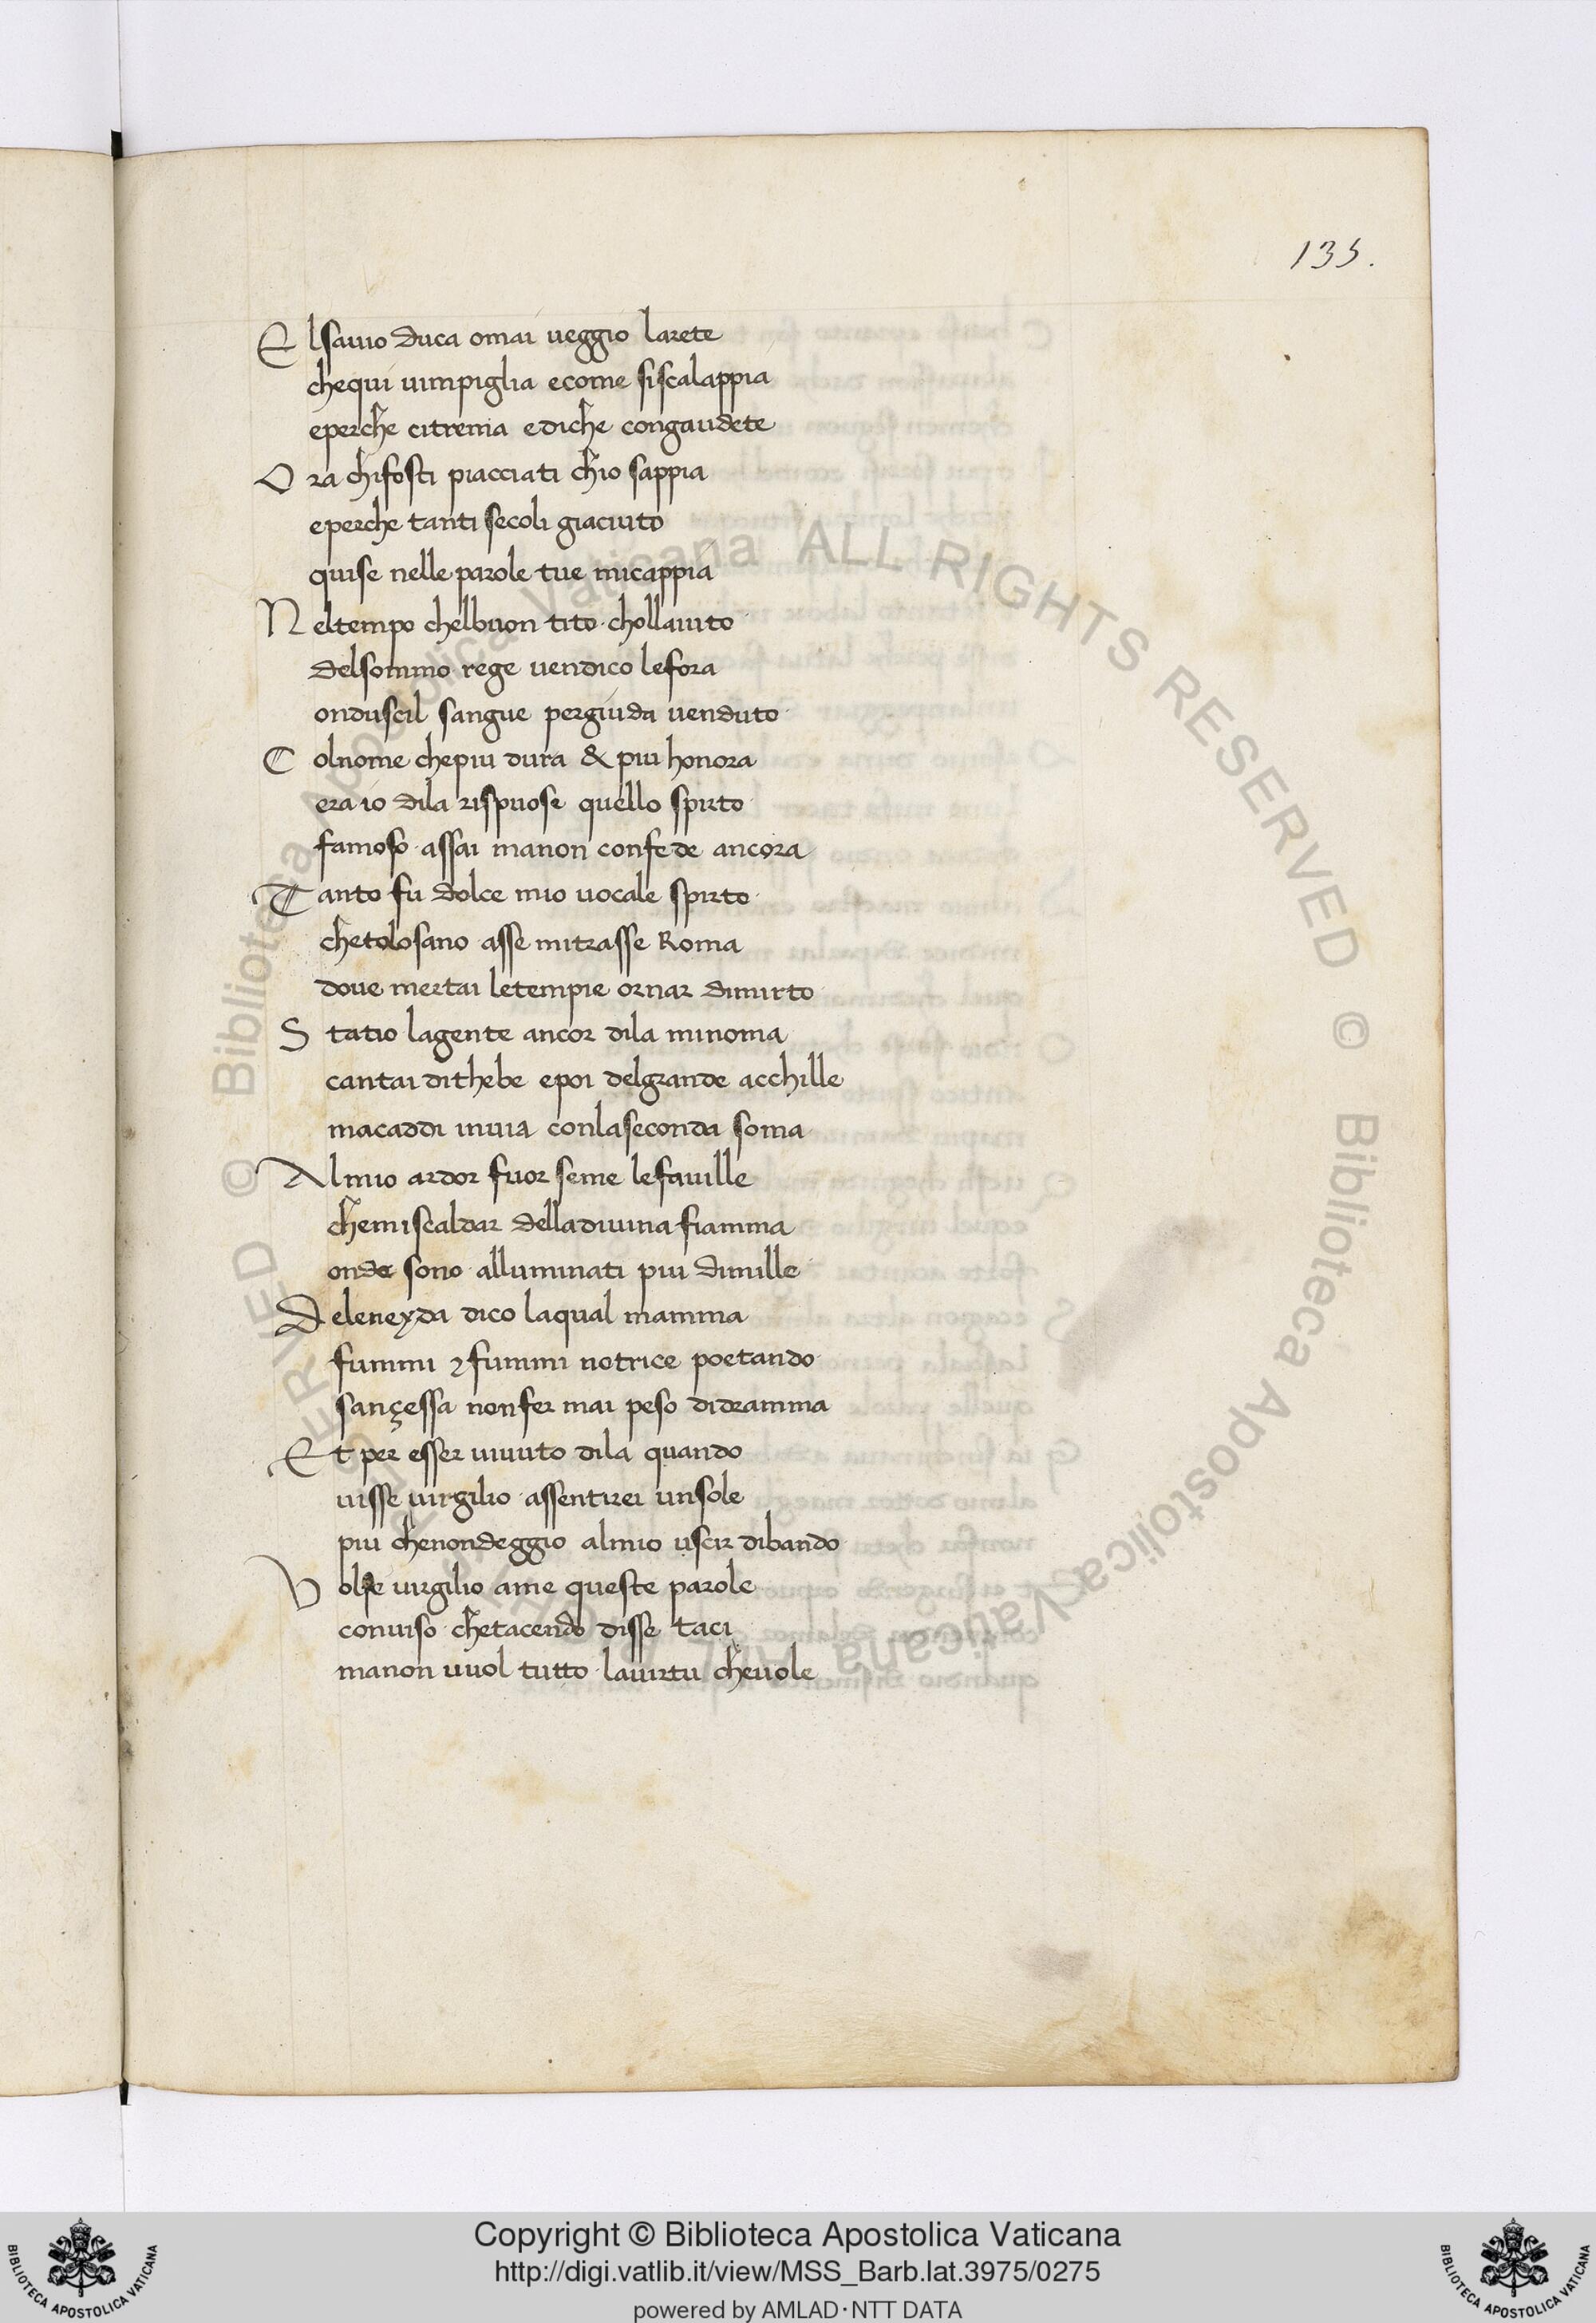 135.
E lsauio duca omai ueggio larete
chequi uimpiglia ecome siscalappia
eperche citrema ediche congaudete
O ra chifosti piacciati chio sappia
eperche tanti secoli giaciuto
quise nelle parole tue micappia
N eltempo chelbuon tito chollaiuto
delsommo rege uendico lefora
onduscil sangue pergiuda uenduto
C olnome chepiu dura & piu honora
era io dila rispuose quello spirto
famoso assai manon confede ancora
T anto fu dolce mio uocale spirto
chetolosano asse mitrasse Roma
doue mertai letempie ornar dimirto
S tatio lagente ancor dila minoma
cantai dithebe epoi delgrande acchille
macaddi inuia conlaseconda soma
A lmio ardor fuor seme lefauille
chemiscaldar delladiuina fiamma
onde sono alluminati piu dimille
D eleneyda dico laqual mamma
fummi ⁊ fummi notrice poetando
sançessa nonfer mai peso didramma
E t per esser uiuuto dila quando
uisse uirgilio assentirei unsole
piu chenondeggio almio uscir dibando
V olse uirgilio ame queste parole
conuiso chetacendo disse taci
manon uuol tutto lauirtu cheuole
© Biblioteca Apostolica Vaticana ALL RIGHTS RESERVED © Biblioteca Apostolica Vaticana ALL RIGHTS RESERVED
Copyright © Biblioteca Apostolica Vaticana
http://digi.vatlib.it/view/MSS_Barb.lat.3975/0275
powered by AMLAD·NTT DATA
BIBLIOTECA APOSTOLICA VATICANA
BIBLIOTECA APOSTOLICA VATICANA